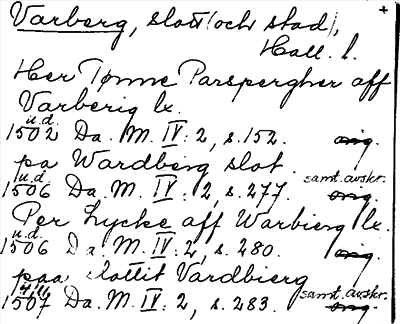 Varberg, slott (och stad), +
Hall. l.
Her Tønne Parspergher aff
Varberig lx.
u.d.
1502 Da. M. IV: 2, s. 152. orig.
pa Wardberg slot. samt. avskr.
u.d.
1506 Da. M. IV: 2, s. 277. orig.
Per Lycke aff Warbierg lx.
u.d.
1506 Da. M. IV: 2, s. 280. orig.
paa slottit Vardbierg samt. avskr.
1507 Da. M. IV: 2, s. 283. orig.